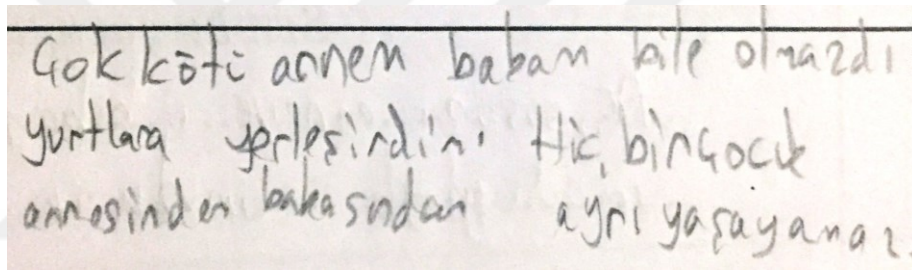 Çok kötü annem babam bile olmazdı
yurtlara yerleşirdim. Hiç bir çocuk
annesinden babasından ayrı yaşayamaz.